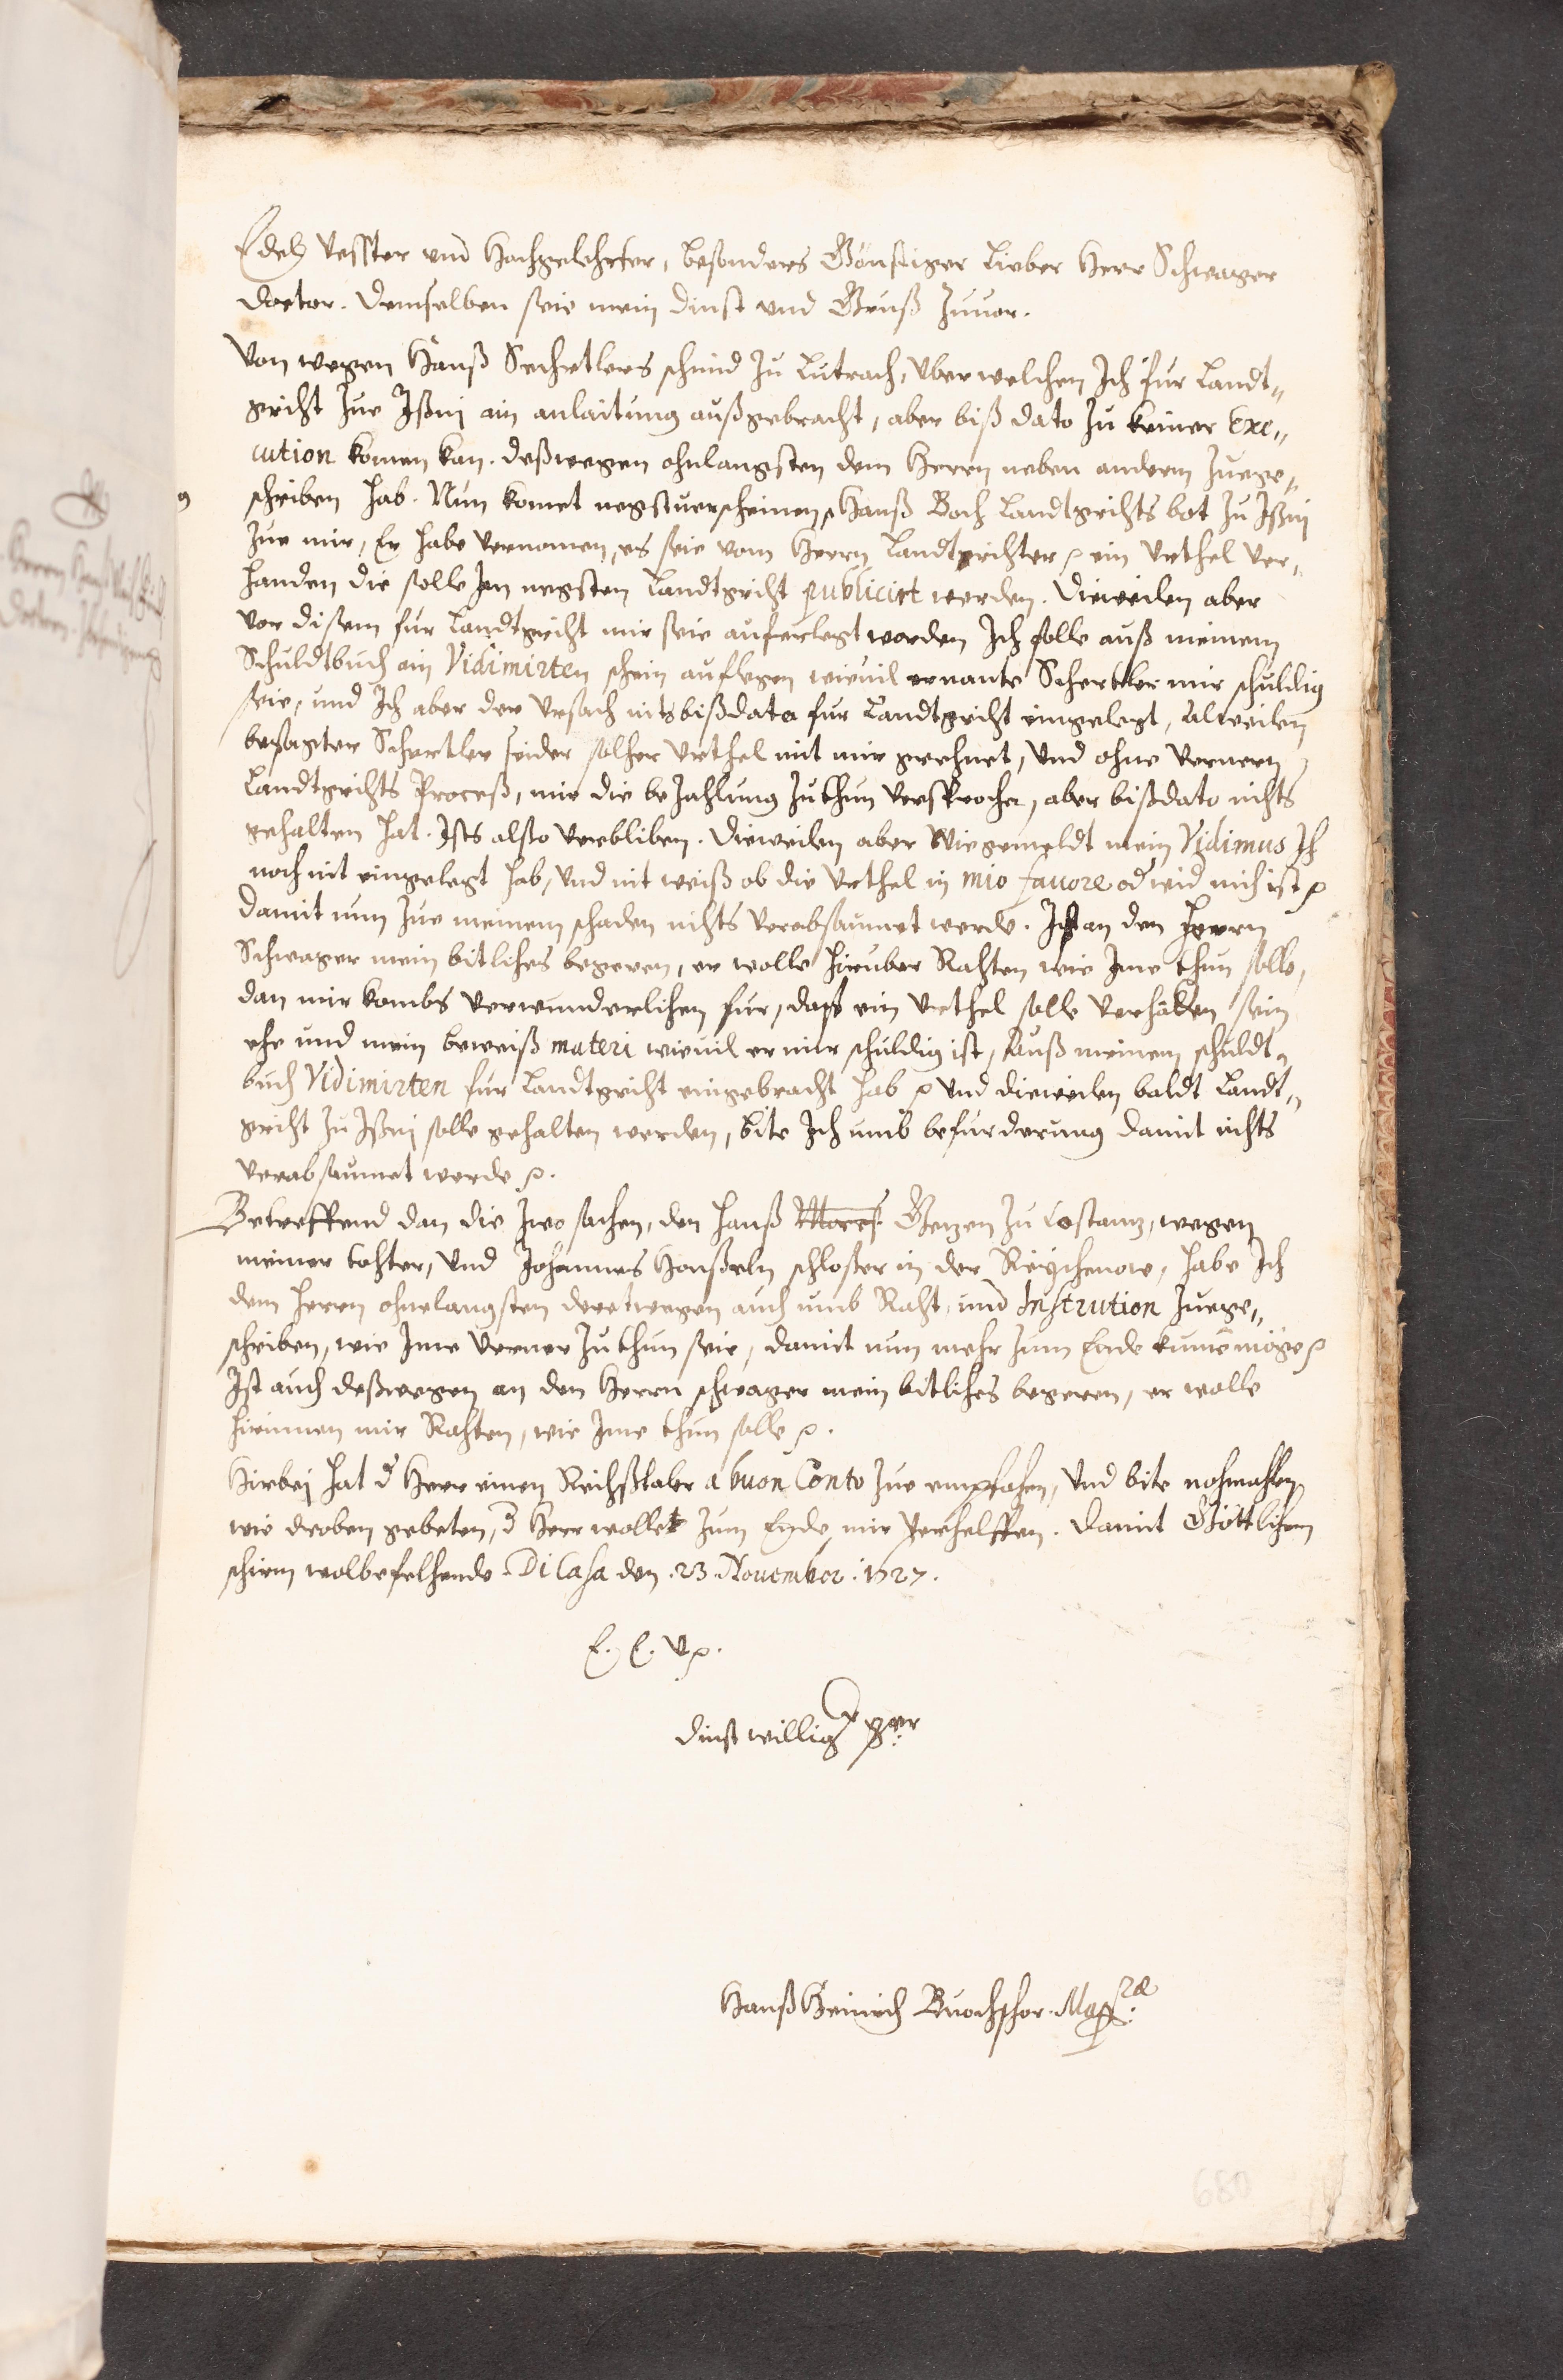 Edel, Vesster und Hochgelehrter, besonders Gönstiger Lieber Herr Schwager
doctor. demselben seie mein dinst und Gruß Zuuor.
Von wegen Hanß Schertlers schmid Zu Lutrach, uber welchen Ich fur Landt„
gricht Zue Ißni ain anlaitung außgebracht, aber biß dato Zu keiner Exe„
cution komen kan. deßwegen ohnlangsten dem Herrn neben anderm Zuege„
schriben hab. Nun komet negstuerscheinen Hanß Boch Landtgrichts bot Zu Ißni
Zue mir, Er habe vernomen, es seie vom Herrn Landtrichter ein Urthel ver„
handen die solle Im negsten Landtgricht publicirt werden. Dieweilen aber
vor disem fur Landtgricht mir seie auferlegt worden Ich solle auß meinem
Schuldtbuch ein Vidimirten schein auflegen wieuil ernante Schertler mir schuldig
seie, und Ich aber der Ursach nits bißdato fur Landtgricht eingelegt, alweilen
besagter Schertler seider solher Urthel mit mir gerehnet, und ohne vernern
Landtgrichts Proceß, mir die beZahlung Zuthun versprochen, aber bißdato nichts
gehalten hat. Ists also verbliben. Dieweilen aber wie gemeldt mein Vidimus Ich
noch nit eingelegt hab, und nit weiß ob die Urthel in mio fauore od wid mich ist
damit nun Zue meinem schaden nichts verabsaumet werde. Ist an den Herrn
Schwager mein bitliches begeren, er wolle hieruber Rahten wie Ime thun solle,
dan mir kombs verwunderlichen fur, daß ein Urthel solle verhanden sein
ehe und mein beweiß materi wieuil er mir schuldig ist, Auß meinem schuldt„
buch Vidimirten fur Landtgricht eingebracht hab und dieweilen baldt Landt„
gricht Zu Ißni solle gehalten werden, bite Ich umb befurderung damit nichts
verabsaumet werde.
Betreffend dan die Zwo sachen, den Hanß Getzen Zu Costantz, wegen
meiner tohter, und Johannes Honßeln schloßer in der Reychenow, habe Ich
dem Herrn ohnelangsten deretwegen auch umb Raht, und Instrution Zuege„
schriben, wie Ime verner Zu thun seie, damit nun mehr Zum Ende kume möge
Ist auch deßwegen an den Herrn schwager mein bitliches begeren, er wolle
hirinnen mir Rahten, wie Ime thun solle.
Hirbej hat d Herr einen Reichßtaler a buon Conto Zue empfahen, und bite nohmahlen
wie droben gebeten, d Herr wolle Zum Ende mir verhelffen. Damit Göttlichem
schirm wolbefelhende. Di Casa den .23. Nouember .1627.
E. E. V.
dinst willig
Hanß Heinrich Buochshor
680